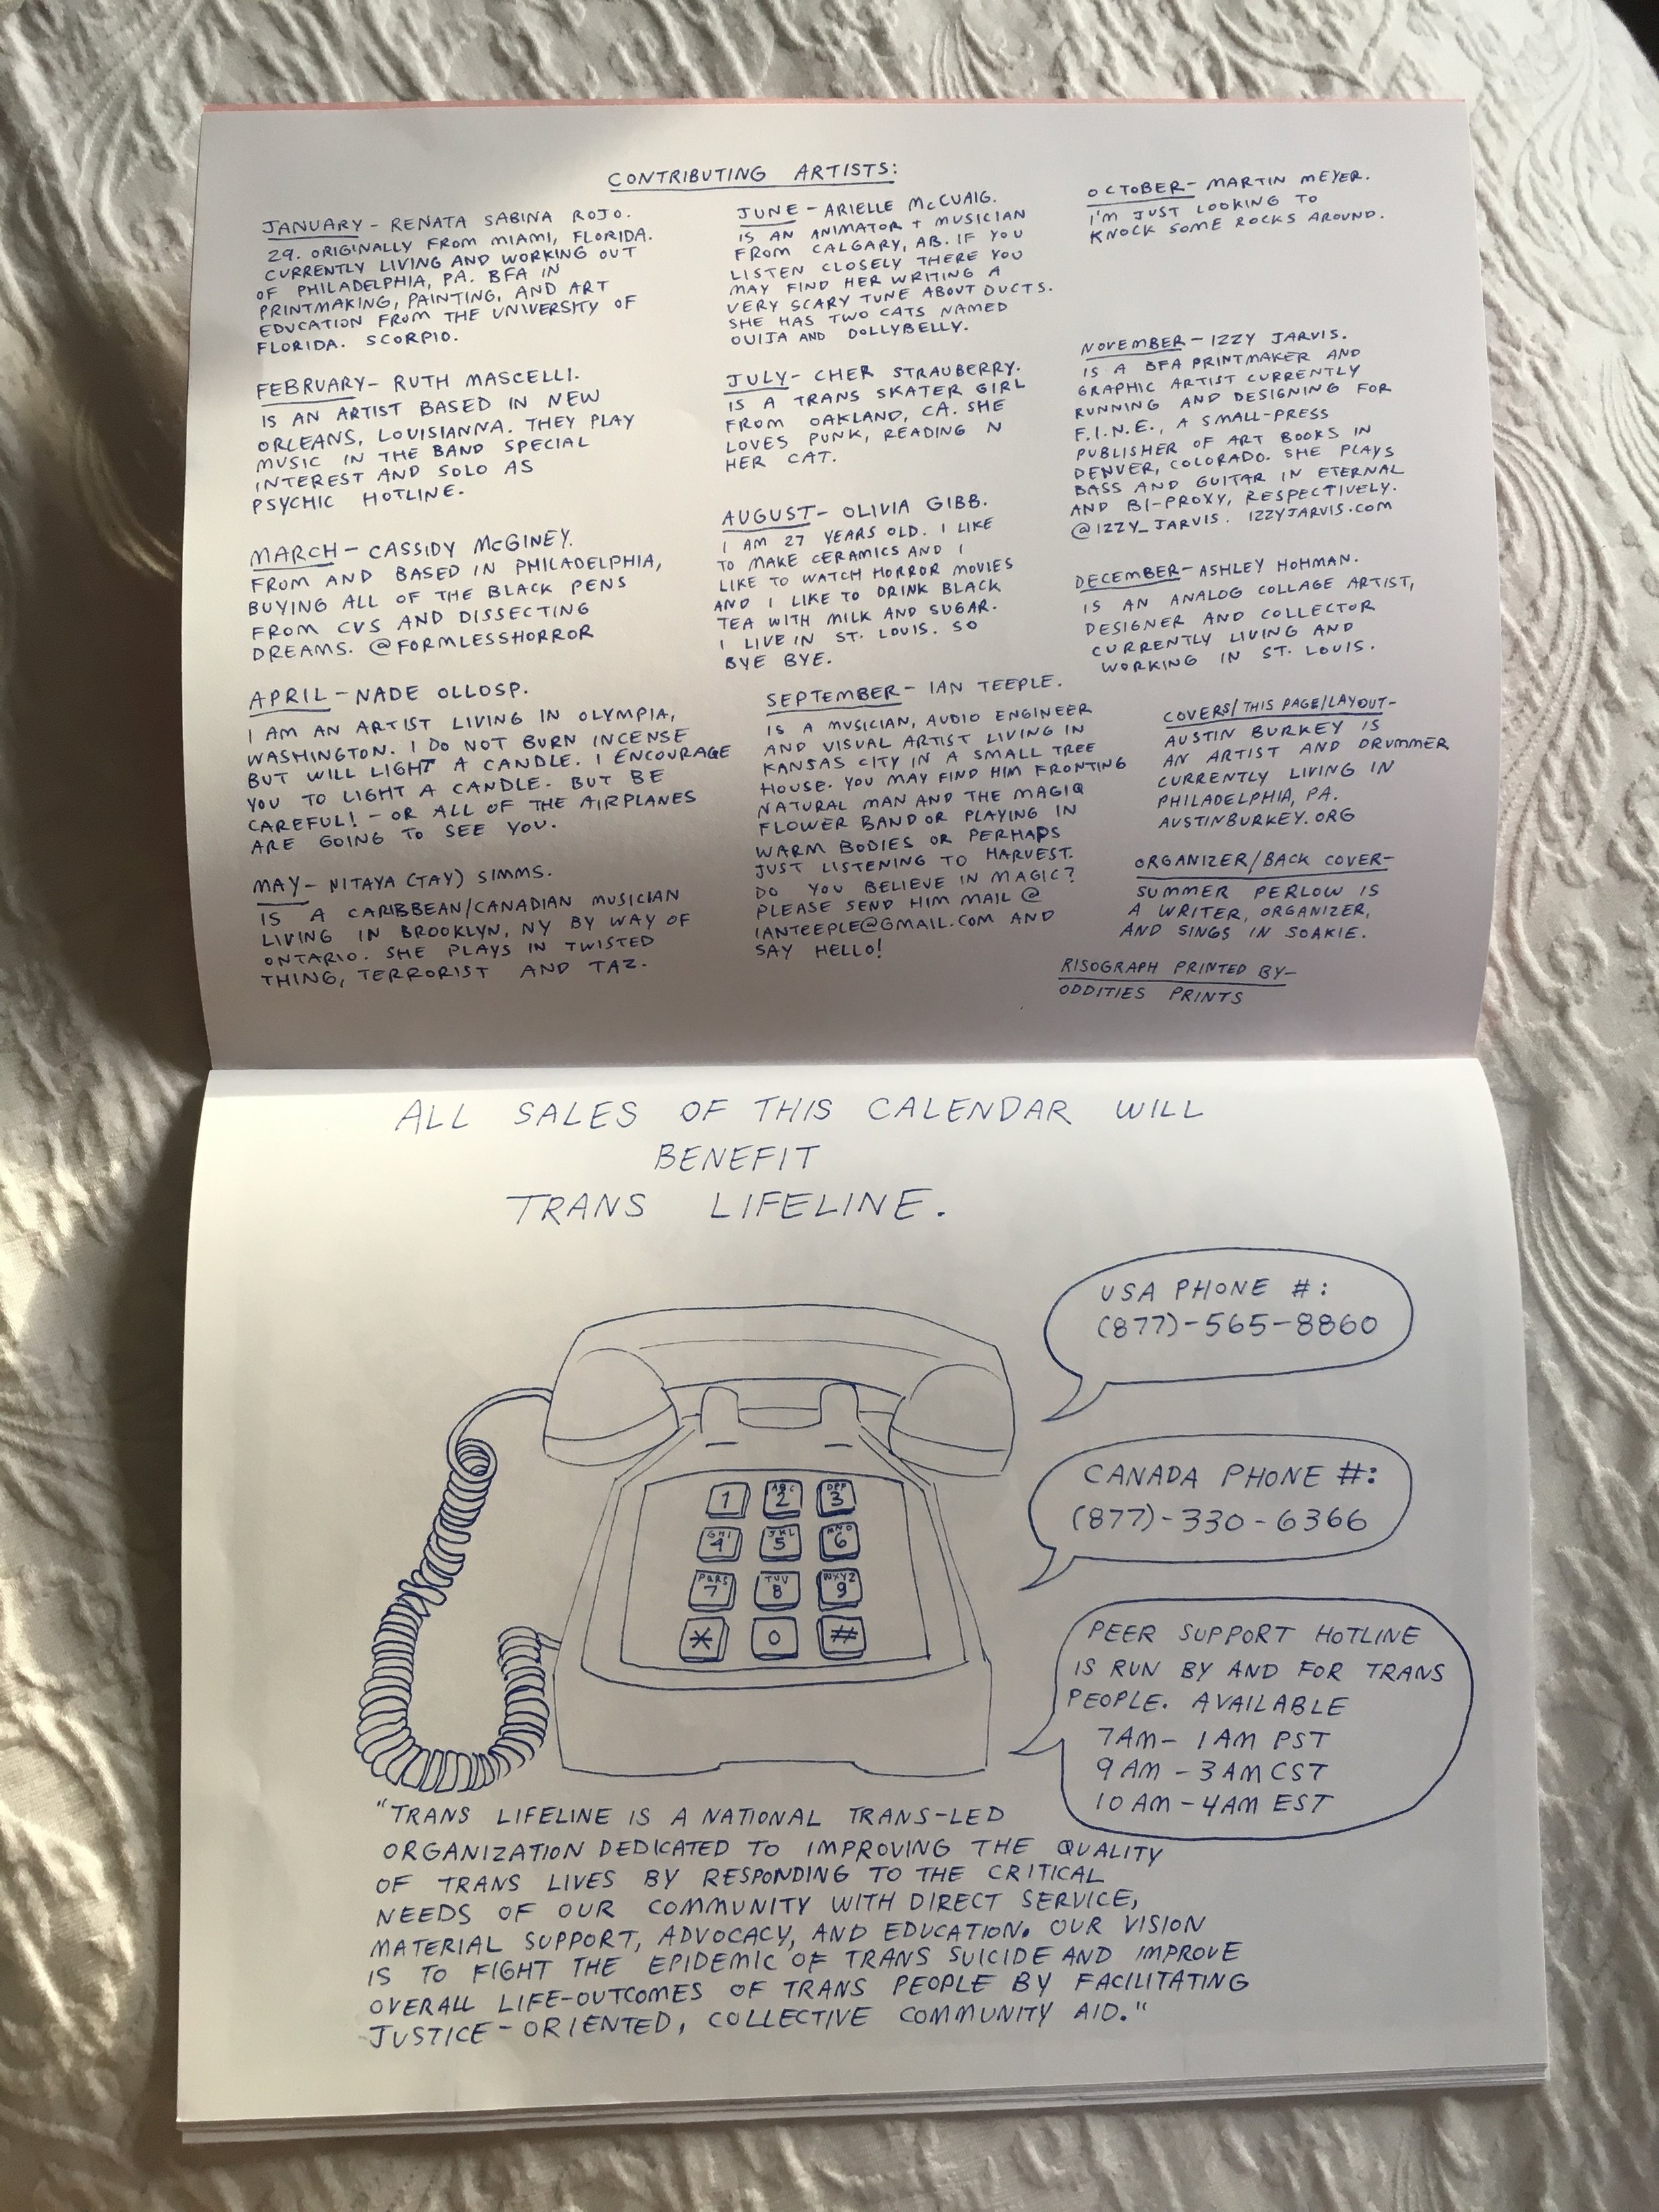 CONTRIBUTING ARTISTS:
JANUARY – RENATA SABINA ROJO.
29. ORIGINALLY FROM MIAMI, FLORIDA.
CURRENTLY LIVING AND WORKING OUT
OF PHILADELPHIA, PA. BFA IN
PRINTMAKING, PAINTING, AND ART
EDUCATION FROM THE UNIVERSITY OF
FLORIDA. SCORPIO.
FEBRUARY – RUTH MASCELLI.
IS AN ARTIST BASED IN NEW
ORLEANS, LOUISIANNA. THEY PLAY
MUSIC IN THE BAND SPECIAL
INTEREST AND SOLO AS
PSYCHIC HOTLINE.
MARCH – CASSIDY McGINEY.
FROM AND BASED IN PHILADELPHIA,
BUYING ALL OF THE BLACK PENS
FROM CVS AND DISSECTING
DREAMS. @FORMLESSHORROR
APRIL – NADE OLLOSP.
I AM AN ARTIST LIVING IN OLYMPIA,
WASHINGTON. I DO NOT BURN INCENSE
BUT WILL LIGHT A CANDLE. I ENCOURAGE
YOU TO LIGHT A CANDLE. BUT BE
CAREFUL! – OR ALL OF THE AIRPLANES
ARE GOING TO SEE YOU.
MAY – NITAYA (TAY) SIMMS.
IS A CARIBBEAN/CANADIAN MUSICIAN
LIVING IN BROOKLYN, NY BY WAY OF
ONTARIO. SHE PLAYS IN TWISTED
THING, TERRORIST AND TAZ.
JUNE – ARIELLE McCUAIG.
IS AN ANIMATOR + MUSICIAN
FROM CALGARY, AB. IF YOU
LISTEN CLOSELY THERE YOU
MAY FIND HER WRITING A
VERY SCARY TUNE ABOUT DUCTS.
SHE HAS TWO CATS NAMED
OUIJA AND DOLLYBELLY.
JULY – CHER STRAUBERRY.
IS A TRANS SKATER GIRL
FROM OAKLAND, CA. SHE
LOVES PUNK, READING N
HER CAT.
AUGUST – OLIVIA GIBB.
I AM 27 YEARS OLD. I LIKE
TO MAKE CERAMICS AND I
LIKE TO WATCH HORROR MOVIES
AND I LIKE TO DRINK BLACK
TEA WITH MILK AND SUGAR.
I LIVE IN ST. LOUIS. SO
BYE BYE.
SEPTEMBER – IAN TEEPLE.
IS A MUSICIAN, AUDIO ENGINEER
AND VISUAL ARTIST LIVING IN
KANSAS CITY IN A SMALL TREE
HOUSE. YOU MAY FIND HIM FRONTING
NATURAL MAN AND THE MAGIQ
FLOWER BAND OR PLAYING IN
WARM BODIES OR PERHAPS
JUST LISTENING TO HARVEST.
DO YOU BELIEVE IN MAGIC?
PLEASE SEND HIM MAIL @
IANTEEPLE@GMAIL.COM AND
SAY HELLO!
OCTOBER – MARTIN MEYER.
I'M JUST LOOKING TO
KNOCK SOME ROCKS AROUND.
NOVEMBER – IZZY JARVIS.
IS A BFA PRINTMAKER AND
GRAPHIC ARTIST CURRENTLY
RUNNING AND DESIGNING FOR
F.I.N.E., A SMALL-PRESS
PUBLISHER OF ART BOOKS IN
DENVER, COLORADO. SHE PLAYS
BASS AND GUITAR IN ETERNAL
AND BI-PROXY, RESPECTIVELY.
@IZZY_JARVIS. IZZYJARVIS.COM
DECEMBER – ASHLEY HOHMAN.
IS AN ANALOG COLLAGE ARTIST,
DESIGNER AND COLLECTOR
CURRENTLY LIVING AND
WORKING IN ST. LOUIS.
COVERS/THIS PAGE/LAYOUT –
AUSTIN BURKEY IS
AN ARTIST AND DRUMMER
CURRENTLY LIVING IN
PHILADELPHIA, PA.
AUSTINBURKEY.ORG
ORGANIZER/BACK COVER –
SUMMER PERLOW IS
A WRITER, ORGANIZER,
AND SINGS IN SOAKIE.
RISOGRAPH PRINTED BY –
ODDITIES PRINTS
ALL SALES OF THIS CALENDAR WILL
BENEFIT
TRANS LIFELINE.
USA PHONE #:
(877)-565-8860
CANADA PHONE #:
(877)-330-6366
PEER SUPPORT HOTLINE
IS RUN BY AND FOR TRANS
PEOPLE. AVAILABLE
7AM – 1AM PST
9AM – 3AM CST
10AM – 4AM EST
1 ABC 2 DEF 3
GHI 4 JKL 5 MNO 6
PQRS 7 TUV 8 WXYZ 9
* 0 #
"TRANS LIFELINE IS A NATIONAL TRANS-LED
ORGANIZATION DEDICATED TO IMPROVING THE QUALITY
OF TRANS LIVES BY RESPONDING TO THE CRITICAL
NEEDS OF OUR COMMUNITY WITH DIRECT SERVICE,
MATERIAL SUPPORT, ADVOCACY, AND EDUCATION. OUR VISION
IS TO FIGHT THE EPIDEMIC OF TRANS SUICIDE AND IMPROVE
OVERALL LIFE-OUTCOMES OF TRANS PEOPLE BY FACILITATING
JUSTICE-ORIENTED, COLLECTIVE COMMUNITY AID."